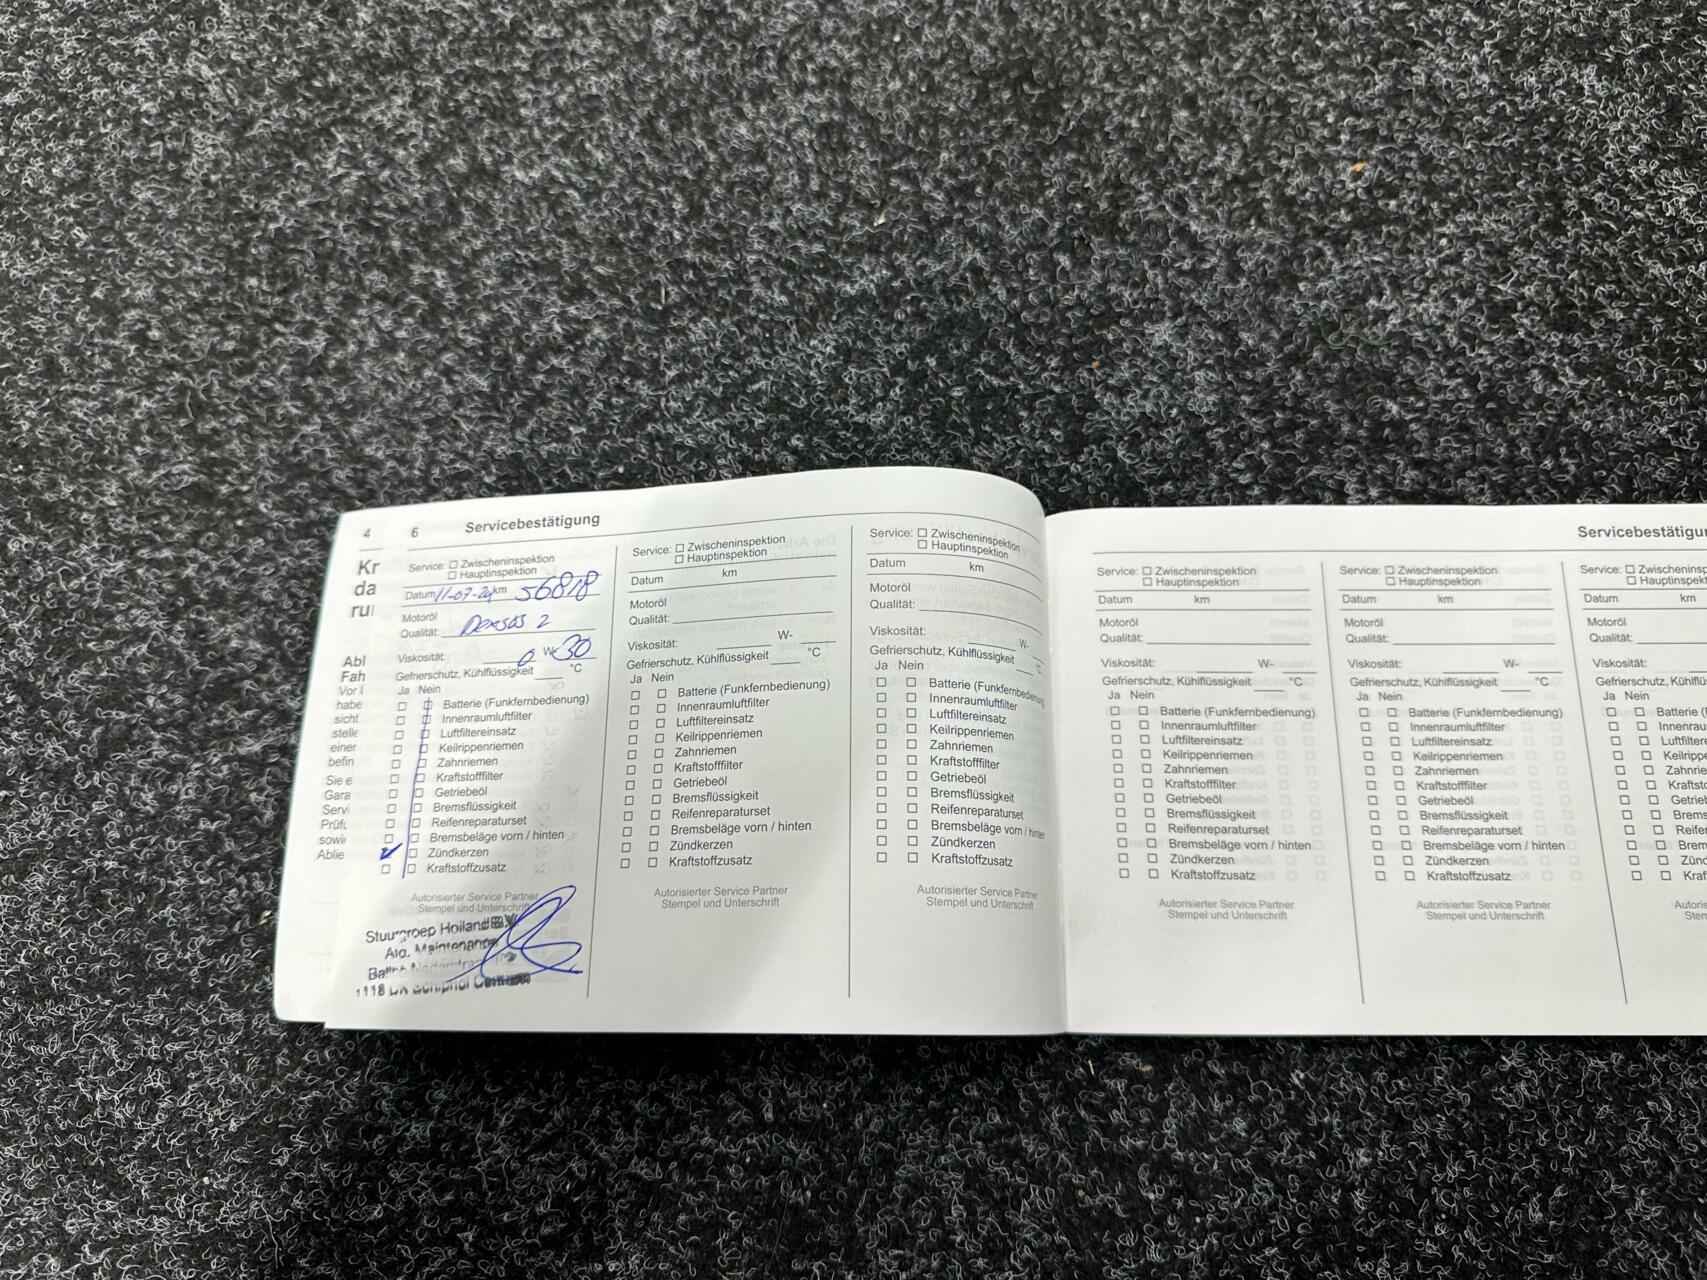 4
Kr
da
ru
Abl
Fah
Vor
habe
sicht
stelle
einer
befin
Sie e
Gara
Servi
Prüf
sowie
Ablie
6 Servicebestätigung
Service: Zwischeninspektion
Hauptinspektion
Datum 11-07-24 km 56818
Motoröl
Qualität: Dexos 2
Viskosität: 0 W- 30
Gefrierschutz, Kühlflüssigkeit °C
Ja Nein
Batterie (Funkfernbedienung)
Innenraumluftfilter
Luftfiltereinsatz
Keilrippenriemen
Zahnriemen
Kraftstofffilter
Getriebeöl
Bremsflüssigkeit
Reifenreparaturset
Bremsbeläge vorn / hinten
Zündkerzen
Kraftstoffzusatz
Autorisierter Service Partner
Stempel und Unterschrift
Stuurgroep Holland B.V.
Alg. Maintenance
1118 Schiphol
Service: Zwischeninspektion
Hauptinspektion
Datum km
Motoröl
Qualität:
Viskosität: W-
Gefrierschutz, Kühlflüssigkeit °C
Ja Nein
Batterie (Funkfernbedienung)
Innenraumluftfilter
Luftfiltereinsatz
Keilrippenriemen
Zahnriemen
Kraftstofffilter
Getriebeöl
Bremsflüssigkeit
Reifenreparaturset
Bremsbeläge vorn / hinten
Zündkerzen
Kraftstoffzusatz
Autorisierter Service Partner
Stempel und Unterschrift
Service: Zwischeninspektion
Hauptinspektion
Datum km
Motoröl
Qualität:
Viskosität: W-
Gefrierschutz, Kühlflüssigkeit °C
Ja Nein
Batterie (Funkfernbedienung)
Innenraumluftfilter
Luftfiltereinsatz
Keilrippenriemen
Zahnriemen
Kraftstofffilter
Getriebeöl
Bremsflüssigkeit
Reifenreparaturset
Bremsbeläge vorn / hinten
Zündkerzen
Kraftstoffzusatz
Autorisierter Service Partner
Stempel und Unterschrift
Servicebestätigun
Service: Zwischeninspektion
Hauptinspektion
Datum km
Motoröl
Qualität:
Viskosität: W-
Gefrierschutz, Kühlflüssigkeit °C
Ja Nein
Batterie (Funkfernbedienung)
Innenraumluftfilter
Luftfiltereinsatz
Keilrippenriemen
Zahnriemen
Kraftstofffilter
Getriebeöl
Bremsflüssigkeit
Reifenreparaturset
Bremsbeläge vorn / hinten
Zündkerzen
Kraftstoffzusatz
Autorisierter Service Partner
Stempel und Unterschrift
Service: Zwischeninspektion
Hauptinspektion
Datum km
Motoröl
Qualität:
Viskosität: W-
Gefrierschutz, Kühlflüssigkeit °C
Ja Nein
Batterie (Funkfernbedienung)
Innenraumluftfilter
Luftfiltereinsatz
Keilrippenriemen
Zahnriemen
Kraftstofffilter
Getriebeöl
Bremsflüssigkeit
Reifenreparaturset
Bremsbeläge vorn / hinten
Zündkerzen
Kraftstoffzusatz
Autorisierter Service Partner
Stempel und Unterschrift
Service: Zwischeninsp
Hauptinspek
Datum km
Motoröl
Qualität:
Viskosität:
Gefrierschutz, Kühlflüssi
Ja Nein
Batterie (F
Innenrau
Luftfilter
Keilripp
Zahnrie
Kraftsto
Getrieb
Brems
Reifen
Brem
Zünd
Kraf
Autoris
Stem